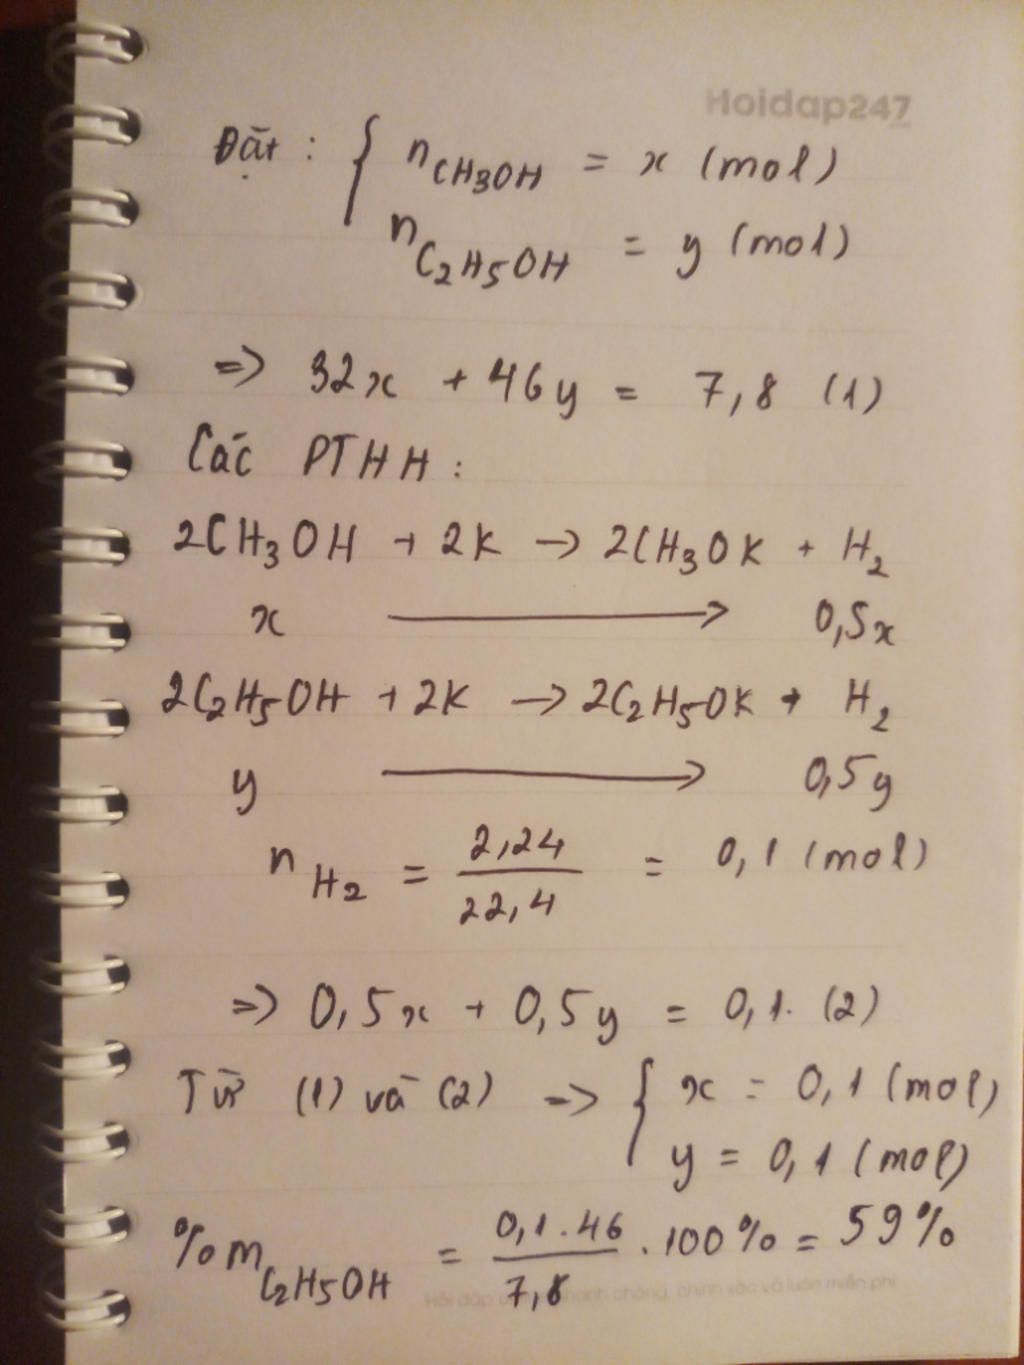 Hoidap247
Đặt : { nCH3OH = x (mol)
nC2H5OH = y (mol)
=> 32x + 46y = 7,8 (1)
Các PTHH :
2CH3OH + 2K → 2CH3OK + H2
x → 0,5x
2C2H5OH + 2K → 2C2H5OK + H2
y → 0,5y
nH2 = 2,24 / 22,4 = 0,1 (mol)
=> 0,5x + 0,5y = 0,1. (2)
Từ (1) và (2) => { x = 0,1 (mol)
y = 0,1 (mol)
%mC2H5OH = 0,1.46 / 7,8 . 100% = 59%
Hỏi đáp nhanh chóng, chính xác và luôn miễn phí